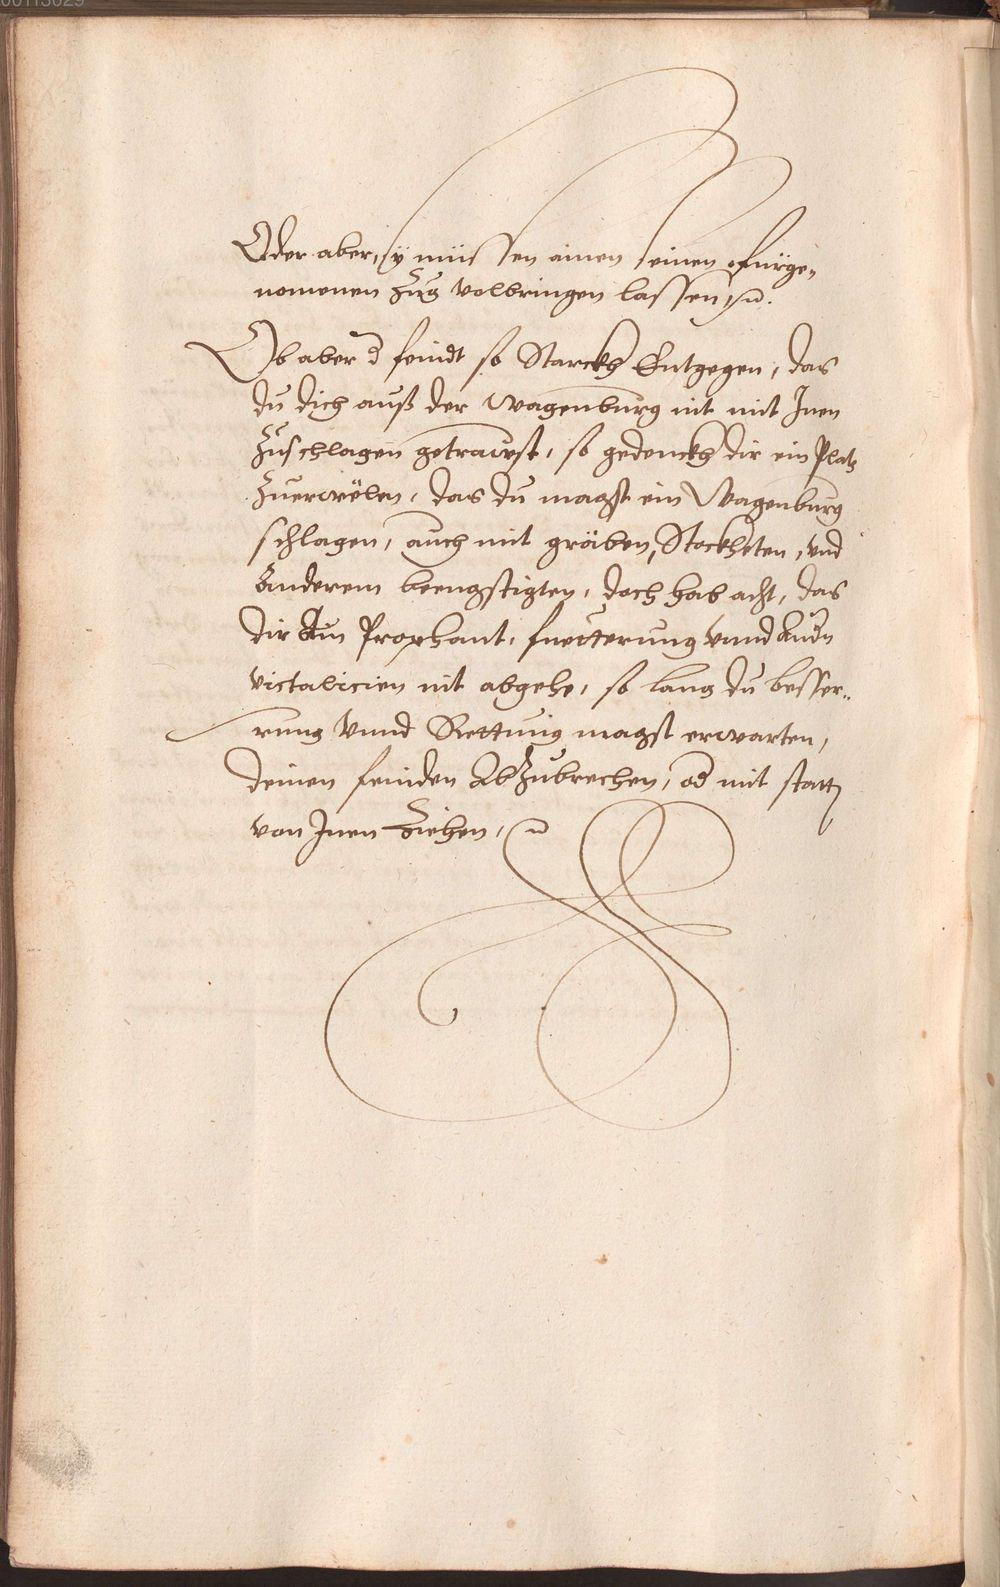 00113029
Oder aber, sÿ müssen ainen seinen fürge„
nomenen Zug volbringen lassen, ꝛc.
Ob aber d feindt so Starckh Entgegen, das
du dich auß der Wagenburg nit mit Inen
Zuschlagen getrawst, so gedenckh dir ein Platz
Zuerwölen, das du magst ein Wagenburg
schlagen, auch mit gräben, Stockheten, vnd
Anderem beengstigten, doch hab acht, das
dir An Prophant, fuetterung vnnd Andn
victalicien nit abgehe, so lang du besser„
rung vnnd Rettung magst erwarten,
deinen feinden AbZubrechen, od mit statt
von Inen Ziehen, ꝛc